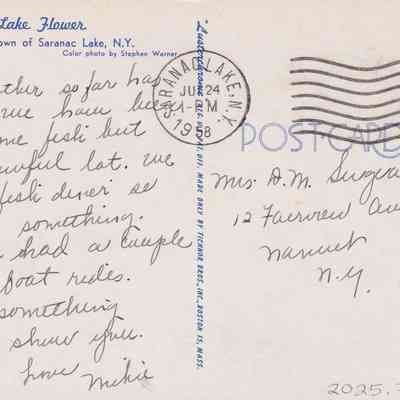 Lake Flower
own of Saranac Lake, N.Y.
Color photo by Stephen Warner
ther so far has
we have been
me fish but
awful lot. We
fish diner" so
something.
had a couple
boat rides.
something
show you.
Love
Mikie
"Lusterchrome" REG. U.S. PAT. OFF. MADE ONLY BY TICHNOR BROS., INC., BOSTON 15, MASS.
SARANAC LAKE, N.Y.
24
1-PM
1958
POSTCARD
Mrs. A.M.
12 Fairview Ave
Nanuet
N.Y.
2025.